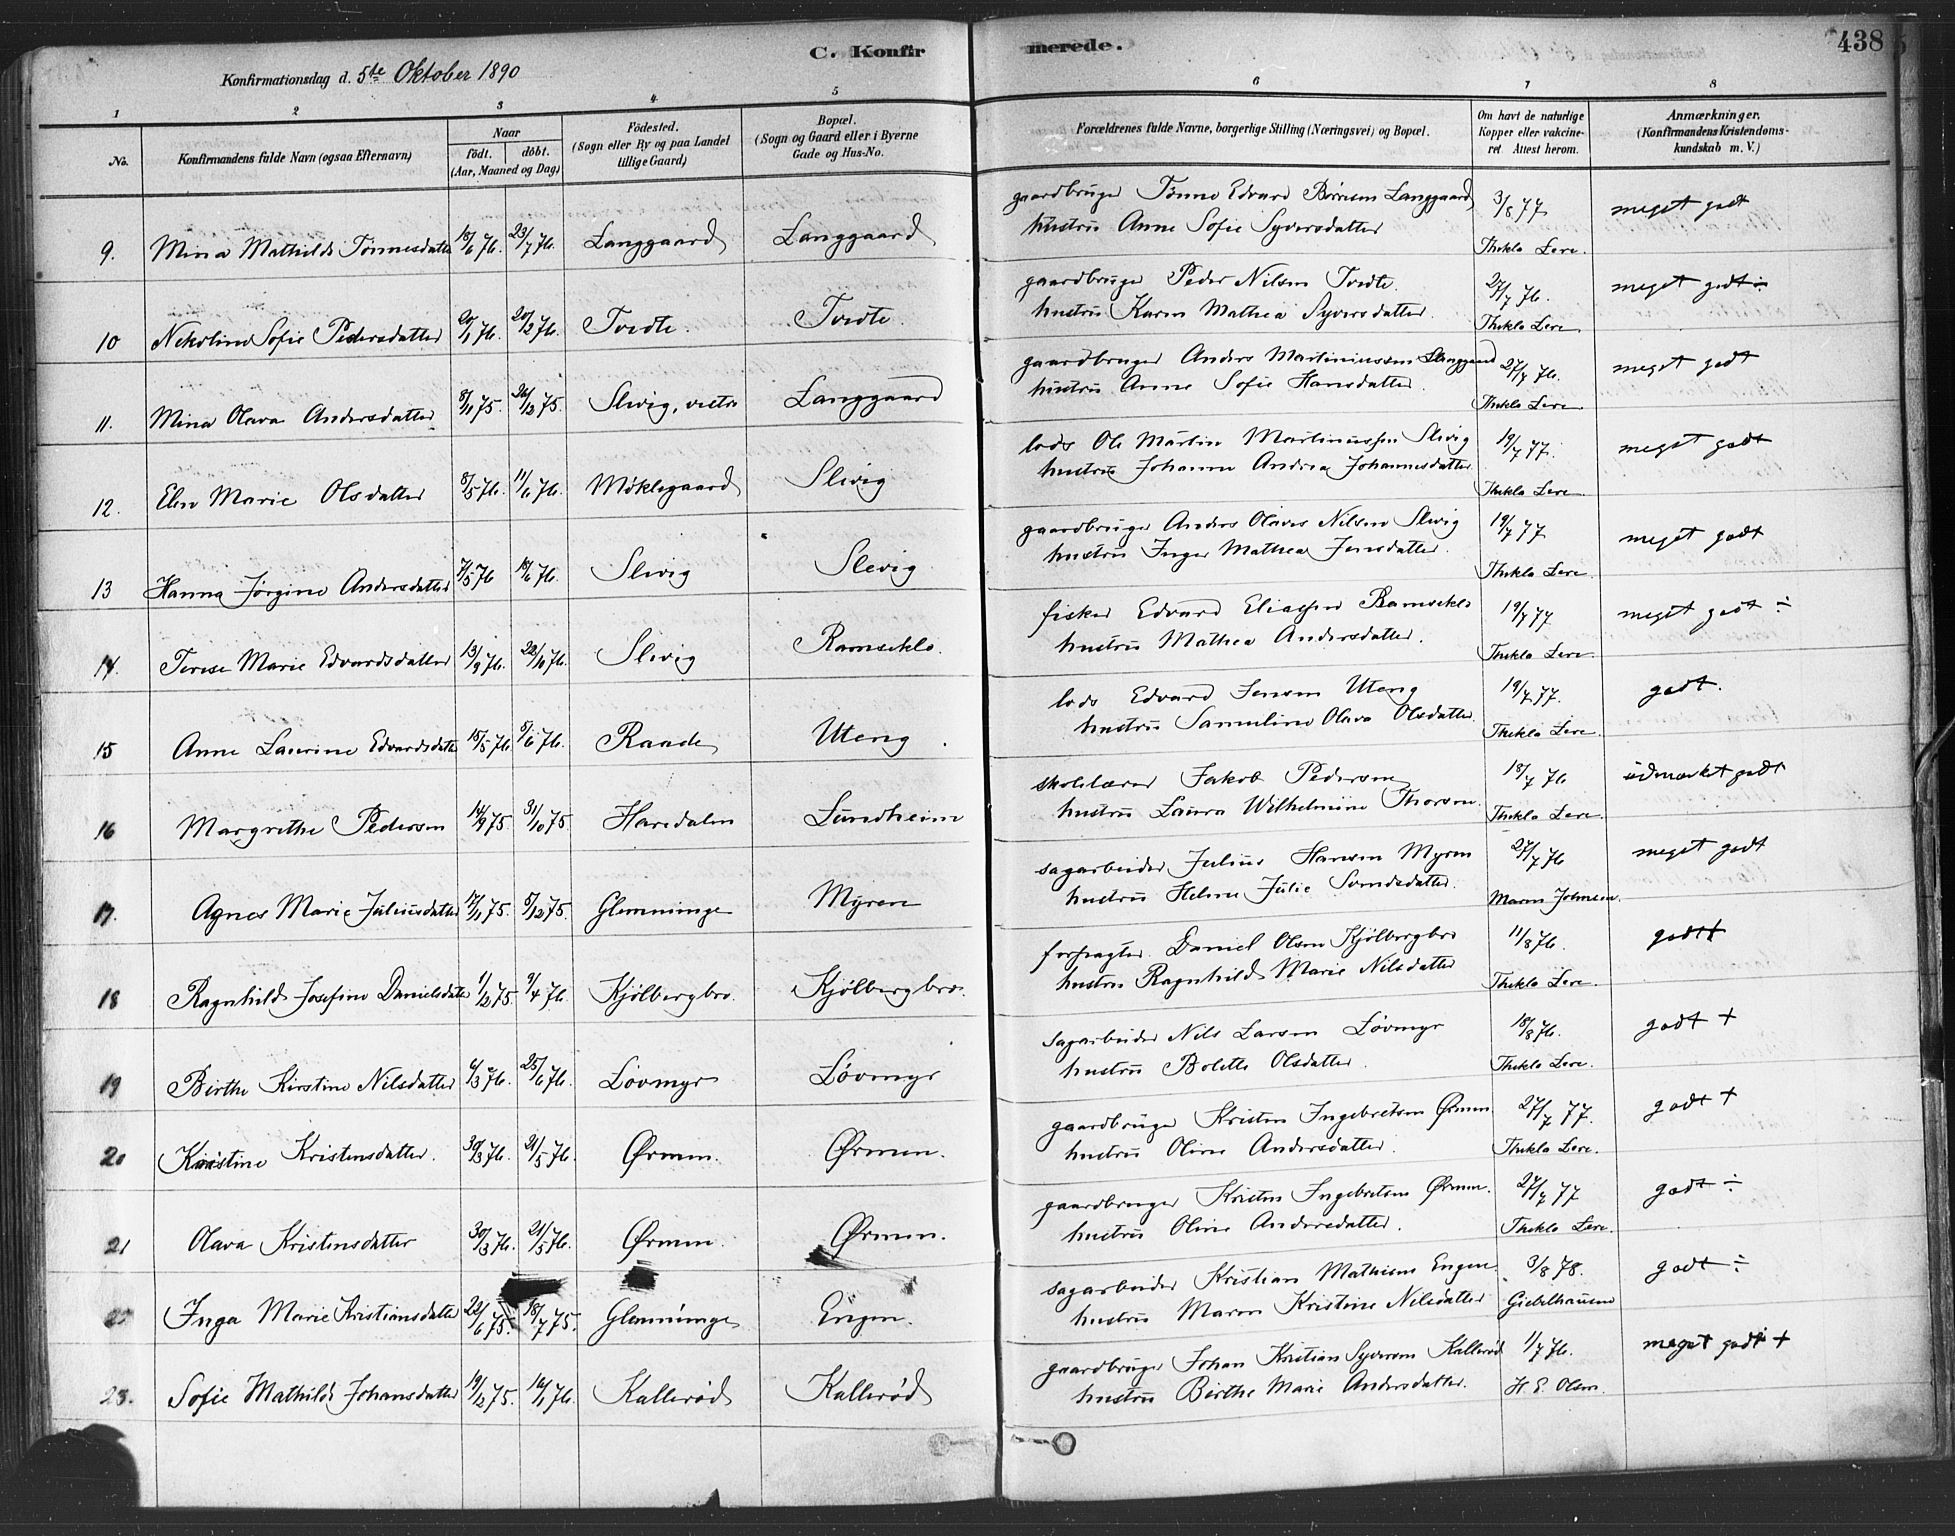 C. Konfirmerede. 438
Konfirmationsdag d. 5te Oktober 1890
1 2 3 4 5 6 7 8
No. Konfirmandens fulde Navn (ogsaa Efternavn) Naar födt. döbt. (Aar, Maaned og Dag) Födested. (Sogn eller By og paa Landet tillige Gaard) Bopæl. (Sogn og Gaard eller i Byerne Gade og Hus-No. Forældrenes fulde Navne, borgerlige Stilling (Næringsvei) og Bopæl. Om havt de naturlige Kopper eller vakcineret Attest herom. Anmærkninger. (Konfirmandens Kristendomskundskab m. V.)
9. Mina Mathilde Tønnesdatter 18/6 76. 23/7 76. Langgaard Langgaard gaardbruger Tønne Edvard Langgaard 3/8 77 meget godt
hustru Anne Sofie Syversdatter Thekla Lere.
10 Nikoline Sofie Pedersdatter 20/1 76. 20/2 76. Tvedte. Tvedte. gaardbruger Peder Nilsen Tvedte. 27/7 76. meget godt ÷
hustru Karen Mathea Syversdatter. Thekla Lere.
11. Mina Olava Andersdatter 8/11 75. 26/12 75. Slevig, vestre Langgaard gaardbruger Anders Martiniussen Langgaard 27/7 76. meget godt
hustru Anne Sofie Hansdatter. Thekla Lere.
12. Elen Marie Olsdatter 8/5 76. 11/6 76. Møklegaard Slevig lods Ole Martin Martinussen Slevig 19/7 77. meget godt
hustru Johanne Andrea Johannesdatter Thekla Lere.
13 Hanna Jørgine Andersdatter 7/5 76 18/6 76. Slevig Slevig gaardbruger Anders Olaves Nilsen Slevig 19/7 77 meget godt
hustru Inger Mathea Jensdatter. Thekla Lere.
14. Terese Marie Edvardsdatter 13/9 76. 22/10 76. Slevig Ramseklo. fisker Edvard Eliassen Ramseklo 19/7 77 meget godt ÷
hustru Mathea Andersdatter. Thekla Lere.
15 Anne Laurine Edvardsdatter 15/5 76. 5/6 76. Raade Uteng. lods Edvard Jensen Uteng 19/7 77. godt.
hustru Samuline Olava Olsdatter. Thekla Lere.
16 Margrethe Pedersen 14/9 75. 31/10 75. Haredalen Lundheim skolelærer Jakob Pedersen 18/7 76 udmærket godt
hustru Laura Wilhelmine Thoresen. Thekla Lere.
17. Agnes Marie Juliusdatter 17/11 75. 5/12 75. Glemminge Myren sagarbeider Julius Hansen Myren 27/7 76 meget godt
hustru Helene Julie Svendsdatter. Maren Johnsen.
18 Ragnhild Josefine Danielsdatter 1/12 75. 9/4 76. Kjølbergbro. Kjølbergbro. forpagter. Daniel Olsen Kjølbergbro 11/8 76. godt
hustru Ragnhild Marie Nilsdatter Thekla Lere.
19 Birthe Kirstine Nilsdatter 6/3 76. 25/6 76. Løvmyr Løvmyr sagarbeider Nils Larsen Løvmyr 18/8 76. godt +
hustru Bolette Olsdatter. Thekla Lere.
20 Kristine Kristensdatter. 30/3 76. 21/5 76. Ørmen. Ørmen. gaardbruger Kristen Ingebretsen Ørmen 27/7 77. godt +
hustru Oline Andersdatter. Thekla Lere.
21 Olava Kristensdatter 30/3 76. 21/5 76. Ørmen. Ørmen. gaardbruger Kristen Ingebretsen Ørmen. 27/7 77 godt ÷
hustru Oline Andersdatter. Thekla Lere.
Inga Marie Kristiansdatter 22/6 75. 18/7 75. Glemminge Engen. sagarbeider Kristian Mathisen Engen. 3/8 78. godt ÷
hustru Maren Kristine Nilsdatter Giebelhausen
23. Sofie Mathilde Johansdatter 19/12 75. 16/1 76. Kallerød Kallerød gaardbruger Johan Kristian Syversen Kallerød 1/7 76. meget godt +
hustru Birthe Marie Andersdatter. H. E. Olsen.